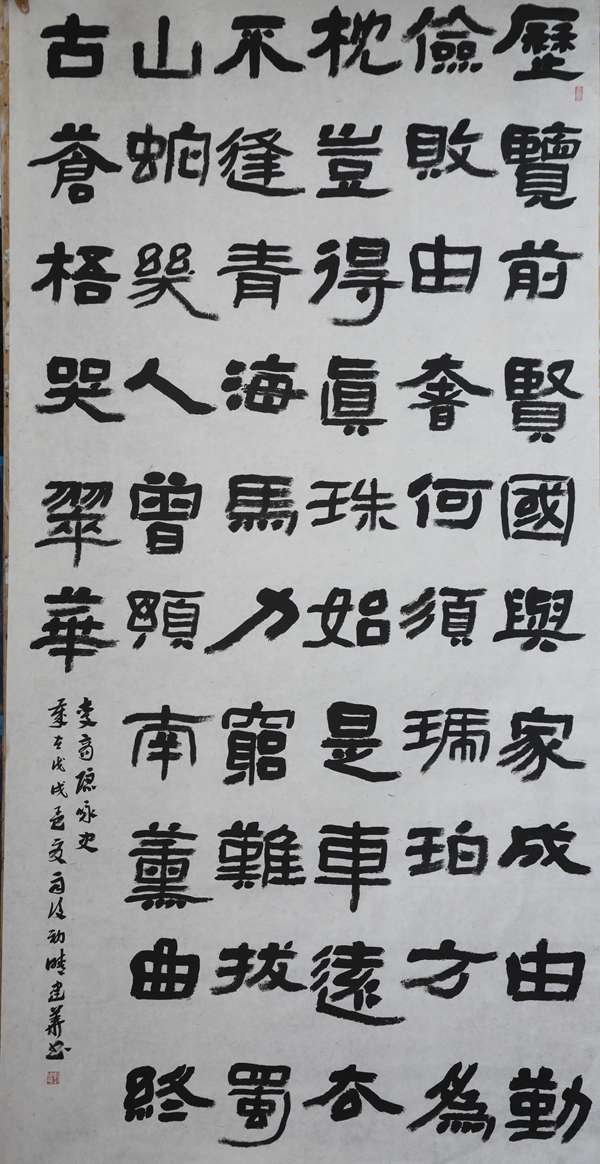 歷覽前賢國與家成由勤
儉敗由奢何須琥珀方為
枕豈得眞珠始是車遠去
不逢青海馬力窮難拔蜀
山蛇幾人曾預南薰曲終
古蒼梧哭翠華
李商隱咏史
歲在戊戌孟夏雨後初晴建華书